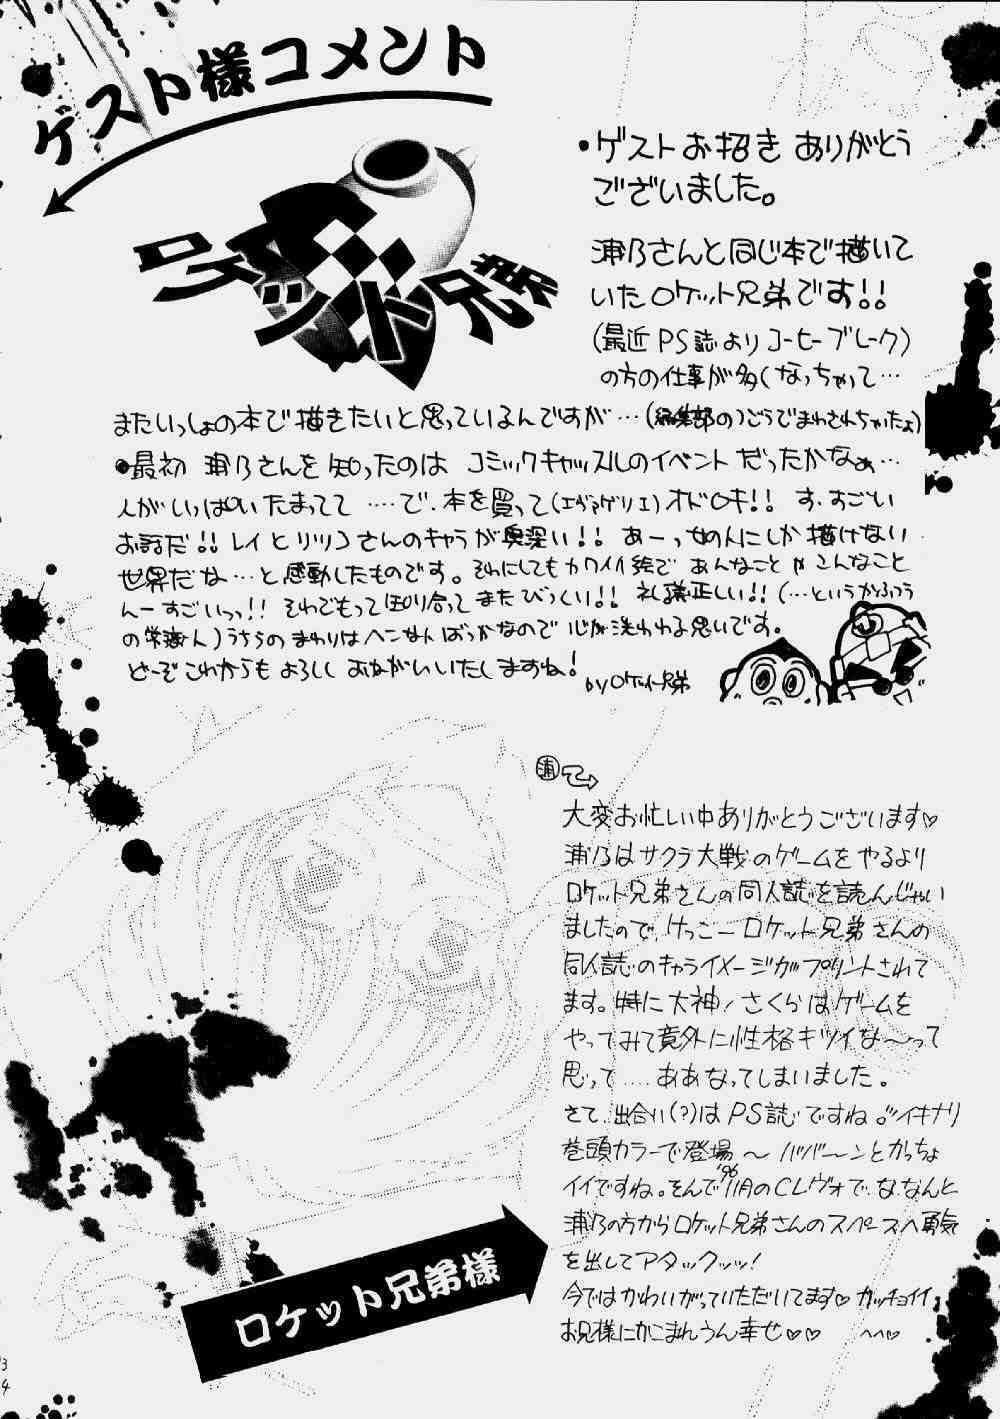 ゲスト様コメント
ロケット兄弟
•ゲストお招き ありがとう
ございました。
浦乃さんと同じ本で描いて
いたロケット兄弟です!!
(最近PS誌よりコーヒーブレーク)
の方の仕事が多くなっちゃって…
またいっしょの本で描きたいと思っているんですが…(編集部の)つごうでまわされちゃったよ)
•最初 浦乃さんを知ったのは コミックキャッスルのイベントだったかなぁ…
人がいっぱいたまってて ……で、本を買って(エヴァゲリエ)オドロキ!! す、すごい
お話だ!! レイとリツコさんのキャラが奥深い!! あーっ女の人にしか描けない
世界だな…と感動したものです。それにしてもカワイイ絵で あんなことやこんなこと
んーすごいっっ!! それでもって 知り合って またびっくり!! 礼儀正しい!!(…というかふつう
の常識人)うちらのまわりはヘンな人ばっかなので 心が洗われる思いです。
どーぞこれからも よろしく おねがいいたしますね!
byロケット兄弟
浦
大変お忙しい中ありがとうございます♡
浦乃はサクラ大戦のゲームをやるより
ロケット兄弟さんの同人誌を読んじゃい
ましたので、けっこーロケット兄弟さんの
同人誌のキャライメージがプリントされて
ます。特に大神!さくらはゲームを
やってみて意外に性格キツイな〜って
思って……ああなってしまいました。
さて、出合い(?)はPS誌ですね。イキナリ
巻頭カラーで登場〜ババーンとかっちょ
イイですね。そんで'96 11月のCレヴォで、な、なんと
浦乃の方からロケット兄弟さんのスペースへ勇気
を出してアタックッッ!
今ではかわいがっていただいてます♡ カッチョイイ
お兄様にかこまれうん幸せ♡♡ ^^♡
ロケット兄弟様
34